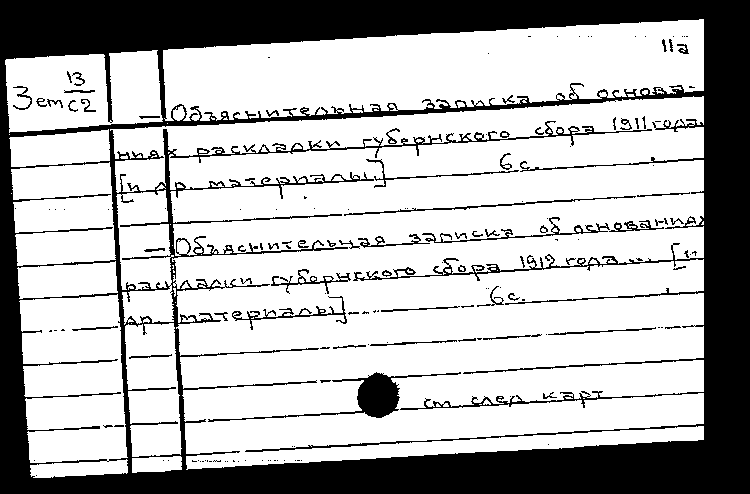 11а
Зем 13/с2
— Объяснительная записка об основа-
ниях раскладки губернского сбора 1911 года.
[и др. материалы.] 6 с.
— Объяснительная записка об основаниях
раскладки губернского сбора 1912 года... [и
др. материалы] 6 с.
см след карт